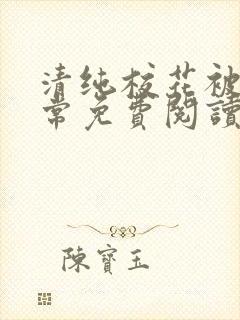 清纯校花被
常免費閱讀
陳寶玉